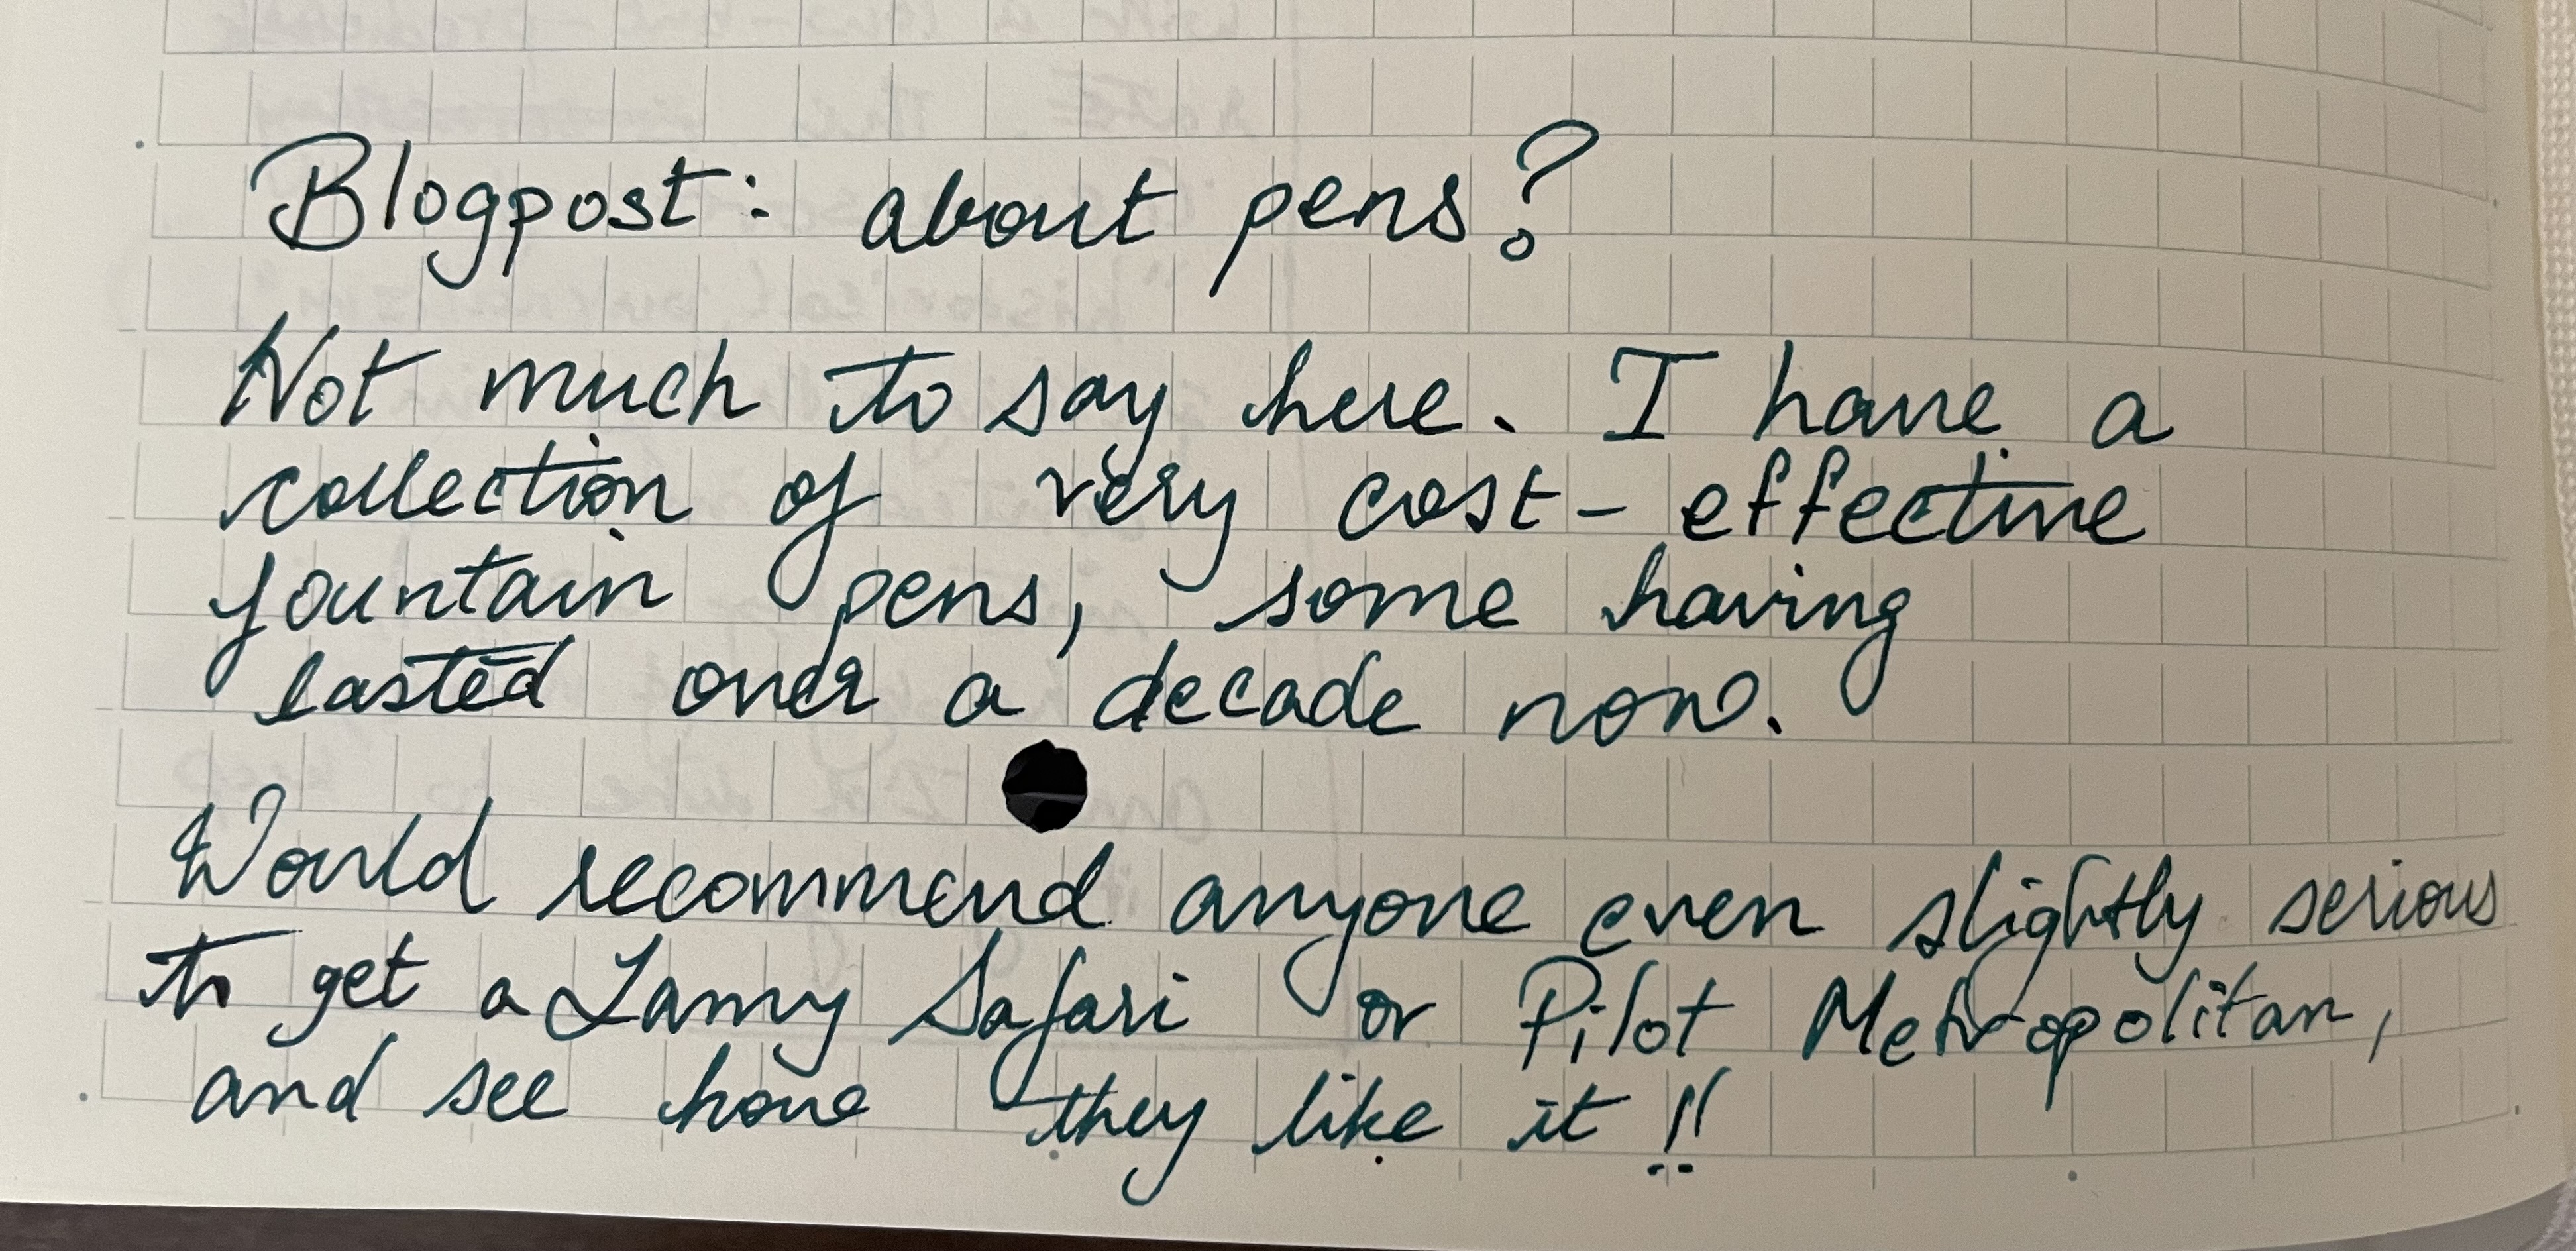 Blogpost: about pens?
Not much to say here. I have a
collection of very cost-effective
fountain pens, some having
lasted over a decade now.
Would recommend anyone even slightly serious
to get a Lamy Safari or Pilot Metropolitan,
and see how they like it!!